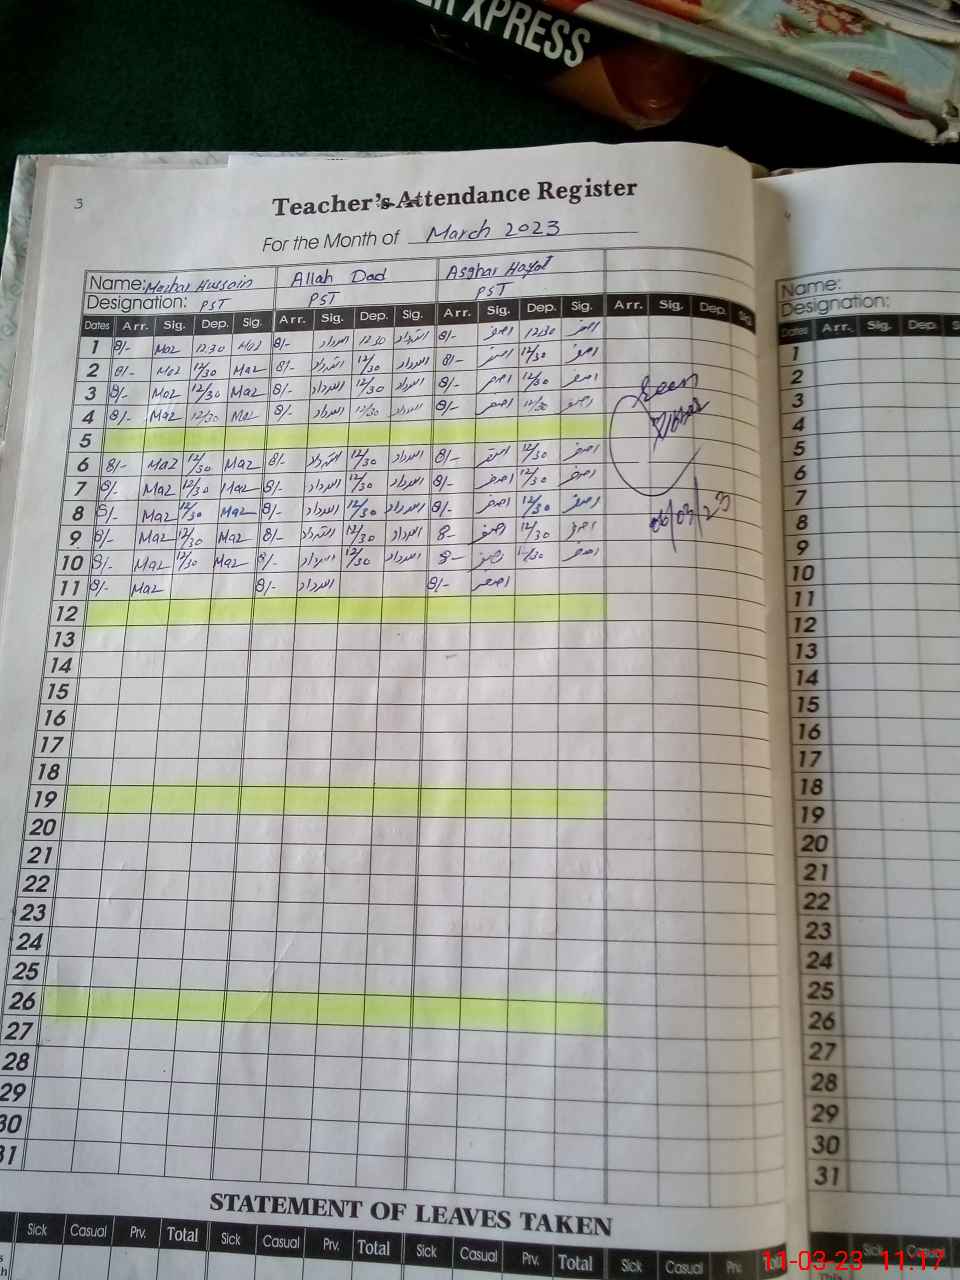 XPRESS
3
Teacher's Attendance Register
For the Month of March 2023
Name: Mazhar Hussain Allah Dad Asghar Hayat
Designation: PST PST PST
Dates Arr. Sig. Dep. Sig. Arr. Sig. Dep. Sig. Arr. Sig. Dep. Sig. Arr. Sig. Dep. Sig
1 8/- Maz 12:30 Maz 8/- اللہ داد 12:30 اللہ داد 8/- اصغر 12:30 اصغر
2 8/- Maz 12/30 Maz 8/- اللہ داد 12/30 اللہ داد 8/- اصغر 12/30 اصغر
3 8/- Maz 12/30 Maz 8/- اللہ داد 12/30 اللہ داد 8/- اصغر 12/30 اصغر
4 8/- Maz 12/30 Maz 8/- اللہ داد 12/30 اللہ داد 8/- اصغر 12/30 اصغر
5
6 8/- Maz 12/30 Maz 8/- اللہ داد 12/30 اللہ داد 8/- اصغر 12/30 اصغر
7 8/- Maz 12/30 Maz 8/- اللہ داد 12/30 اللہ داد 8/- اصغر 12/30 اصغر
8 8/- Maz 12/30 Maz 8/- اللہ داد 12/30 اللہ داد 8/- اصغر 12/30 اصغر
9 8/- Maz 12/30 Maz 8/- اللہ داد 12/30 اللہ داد 8- اصغر 12/30 اصغر
10 8/- Maz 12/30 Maz 8/- اللہ داد 12/30 اللہ داد 8- اصغر 12/30 اصغر
11 8/- Maz 8/- اللہ داد 8/- اصغر
12
13
14
15
16
17
18
19
20
21
22
23
24
25
26
27
28
29
30
31
Seen
06/03/23
STATEMENT OF LEAVES TAKEN
Sick Casual Prv. Total Sick Casual Prv. Total Sick Casual Prv. Total Sick Casual Prv.
4
Name:
Designation:
Dates Arr. Sig. Dep.
1
2
3
4
5
6
7
8
9
10
11
12
13
14
15
16
17
18
19
20
21
22
23
24
25
26
27
28
29
30
31
Sick Casual
11-03-23 11:17